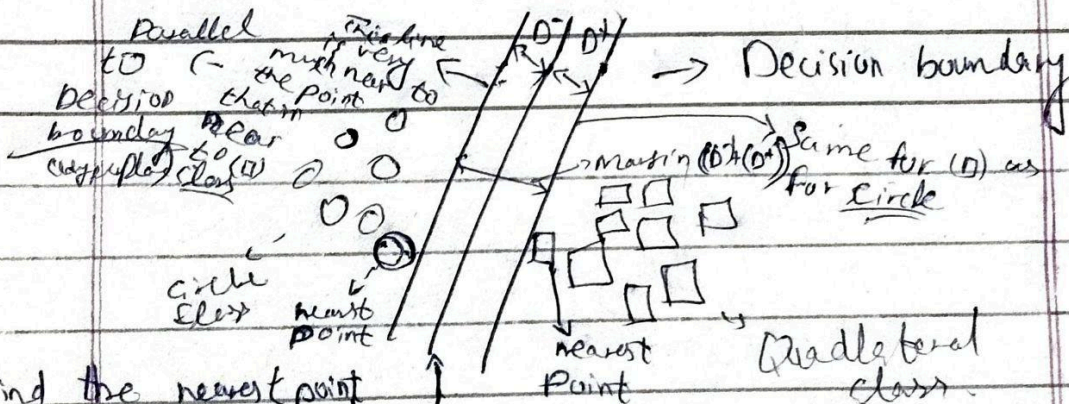 Parallel
to
Decision
boundary
this line
is very
much near to
the point
than
near
to
class (□)
D⁻
D⁺
→ Decision boundary
margin (D⁻)+(D⁺)
Same for (□) as
for Circle
circle
class
nearest
point
nearest
Point
Quadlateral
class.
ind the nearest point